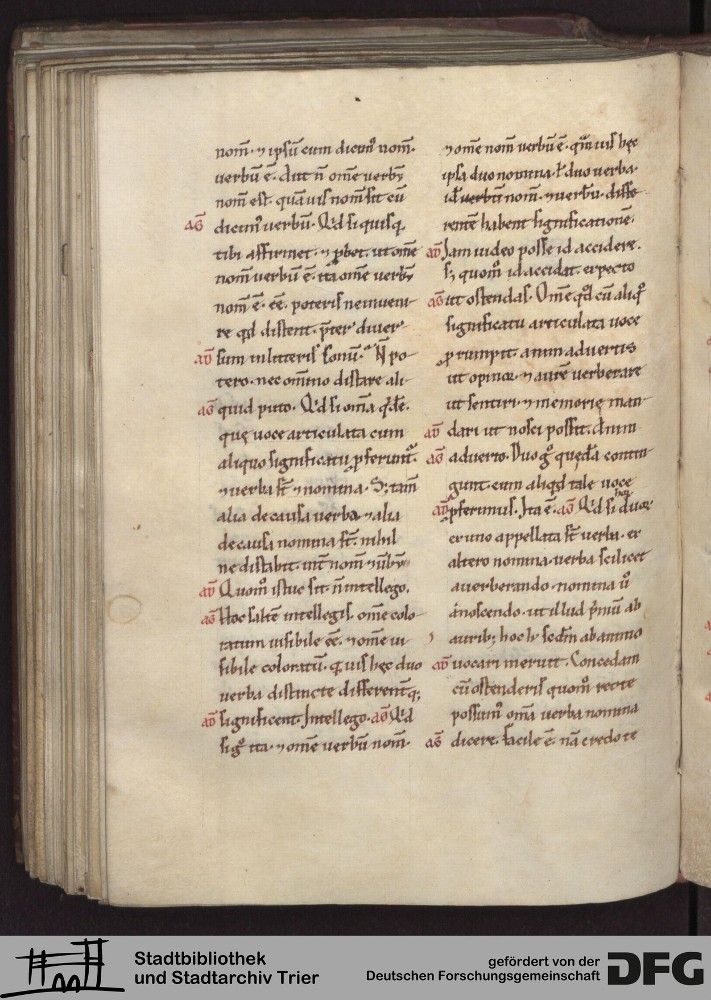 nom̄. ⁊ ipsū cum dicim᷒ nom̄.
uerbū ē. Aut n̄ om̄e uerbū
nom̄ est. quāuis nom̄ sit cū
AḠ dicim᷒ uerbū. Qd̄ si quisq̨
tibi affirmet. ⁊ ꝓbet. ut om̄e
nom̄ uerbū ē. ita om̄e uerbū
nom̄ ē. ēē. poteris ne inueni-
re qd̄ distent. p̄ter diuer-
AD̄ sum in litteris sonū. N̄ po-
tero. nec omnino distare ali-
AḠ quid puto. Qd̄ si om̄a q̄dē.
quę uoce articulata cum
aliquo significatu ꝓferunt᷒.
⁊ uerba s̄t ⁊ nomina. S; tam̄
alia de causa uerba ⁊ alia
de causa nomina s̄t. nihil
ne distabit. int̄ nom̄ ⁊ ūbū
AD̄ Quom̄ istuc sit n̄ intellego.
AḠ Hoc saltē intellegis. om̄e colo-
ratum uisibile ēē. ⁊ om̄e ui-
sibile coloratū. q̄uis hęc duo
uerba distincte differentq̨;
AD̄ significent. Intellego. AḠ Qd̄
sig᷒ ita ⁊ om̄e uerbū nom̄.
⁊ om̄e nom̄ uerbū ē. q̄muis hęc
ipsa duo nomina. ł duo uerba.
id ē uerbū nom̄. ⁊ uerbū. diffe-
rentē habent significationē.
AD̄ Iam uideo posse id accidere.
s; quom̄ id accidat. expecto
AḠ ut ostendas. Om̄e qd̄ cū aliq᷒
significatu articulata uoce
ꝓrumpit. animaduertis
ut opinor. ⁊ aurē uerberare
ut sentiri. ⁊ memorię man-
AD̄ dari ut nosci possit. Anim-
AḠ aduerto. Duo g᷒ quędā contin-
gunt. cum aliqd̄ tale uoce
AD̄ ꝓferimus. Ita ē. AḠ Qd̄ si horū duor᷒
ex uno appellata s̄t uerba. ex
altero nomina. uerba scilicet
a uerberando. nomina ū
a noscendo. ut illud p̄mū ab
aurib; hoc h̄ sc̄dm̄ ab animo
AD̄ uocari merunt. Concedam
cū ostenderis quom̄ recte
possim᷒ om̄a uerba nomina
AḠ dicere. Facile ē. nā credo te
Stadtbibliothek
und Stadtarchiv Trier
gefördert von der
Deutschen Forschungsgemeinschaft
DFG